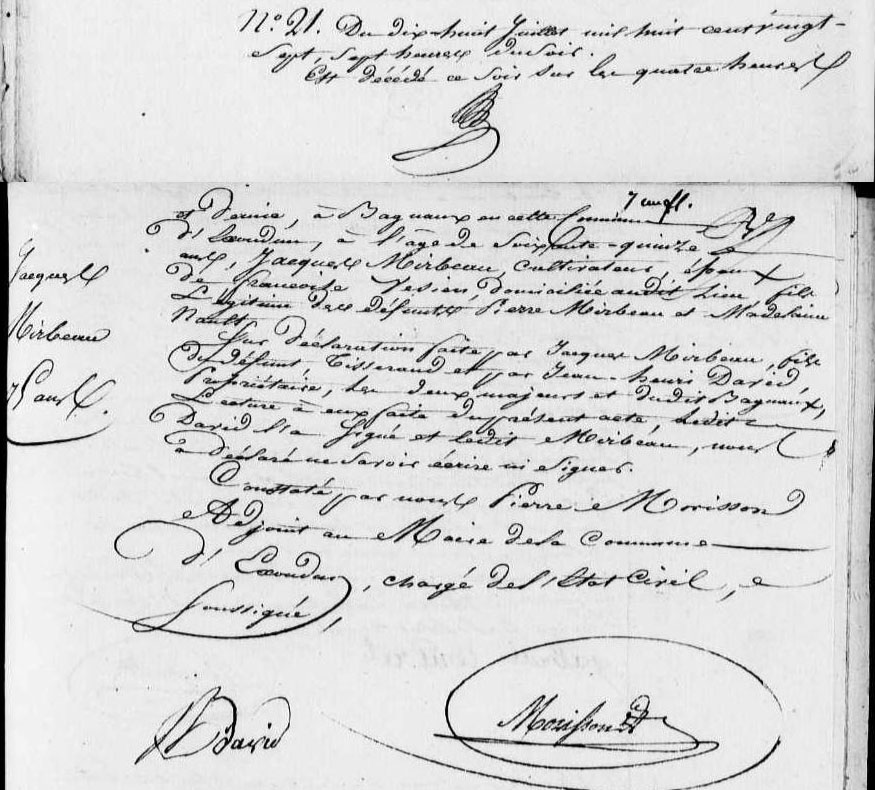 N.º 21. Du dix-huit Juillet mil huit cent vingt-
sept, sept heures du soir.
Est décédé ce soir sur les quatre heures
et demie, à Bagnaux en cette Commune
d'Exoudun, à l'âge de Soixante-quinze
ans, Jacques Mirbeau, cultivateur, époux
de francoise, domiciliée audit lieu, fils
Légitime des défunts Pierre Mirbeau et Madelaine
Nault.
Sur déclaration faite par Jacques Mirbeau, fils
du défunt, Tisserand et par Jean-henri David,
Propriétaire, les deux majeurs et dudit Bagnaux,
Lecture à eux faite du présent acte, ledit
David l'a Signé et ledit Mirbeau, nous
a déclaré ne Savoir écrire ni Signer.
Constaté par nous Pierre Morisson
Adjoint au Maire de la Commune
d'Exoudun, chargé de l'Etat Civil,
Soussigné,
Jacques
Mirbeau
75 ans.
David
Morisson